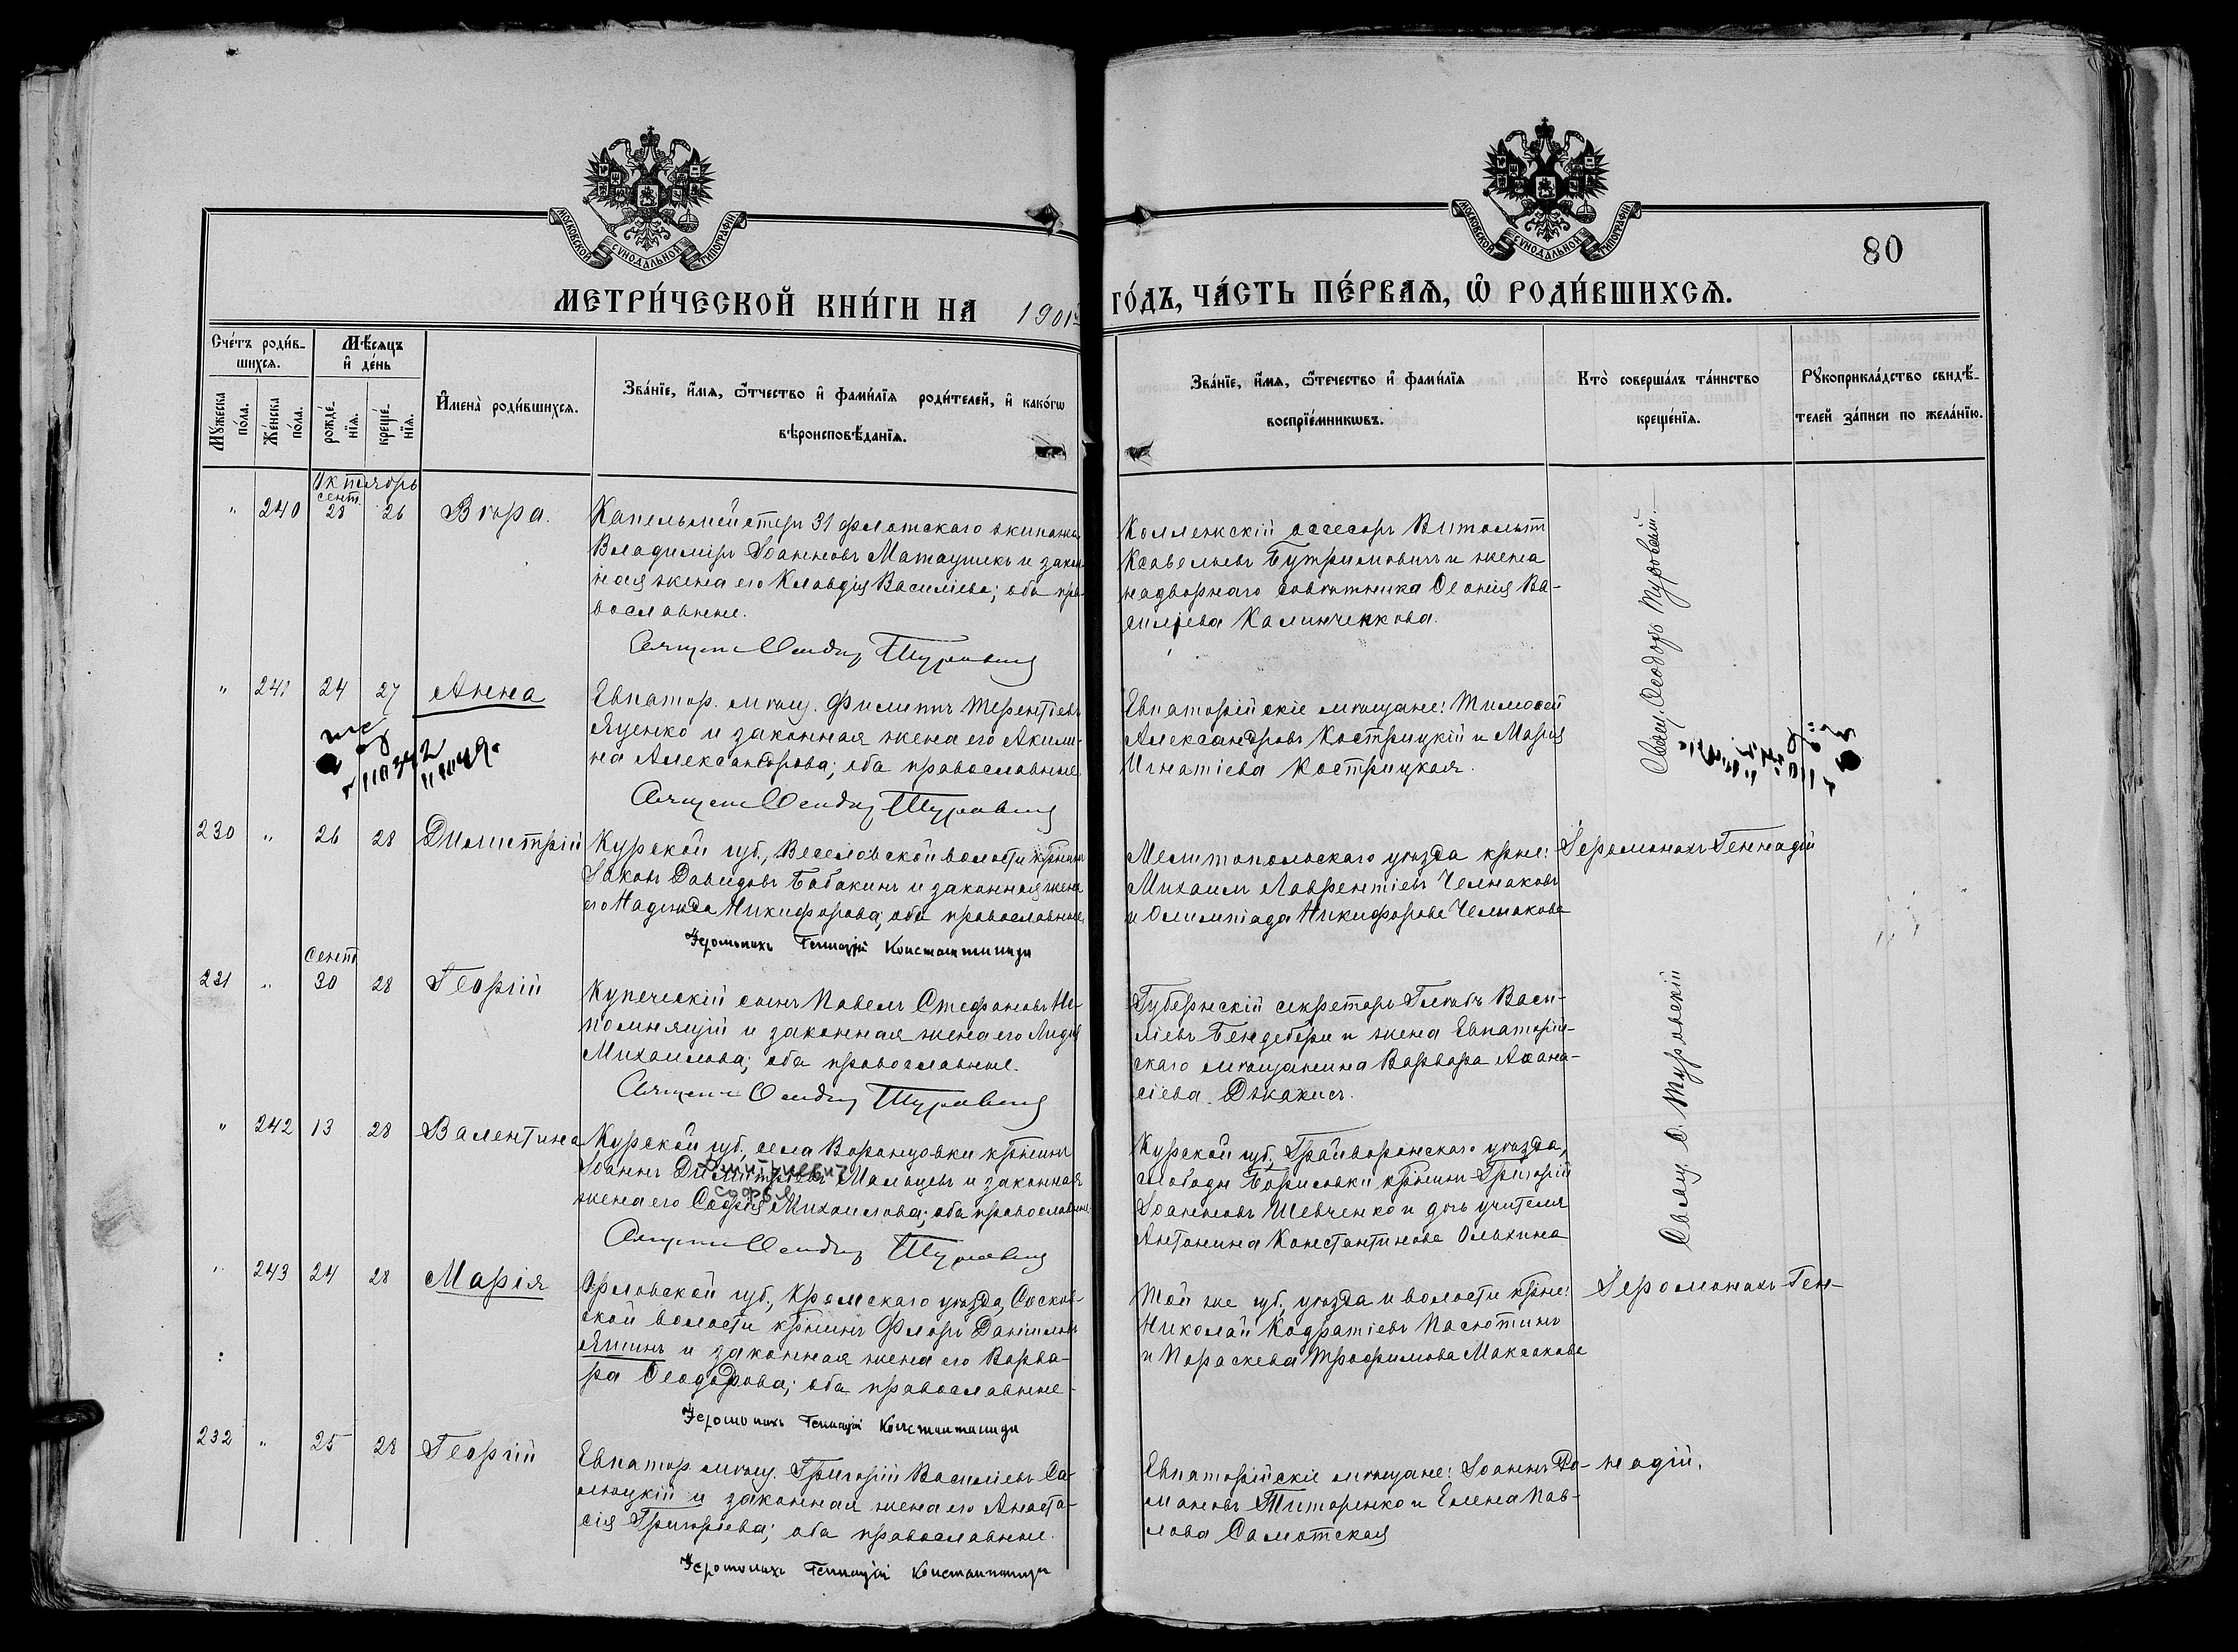 МОСКОВСКОЙ СѴНОДАЛЬНОЙ ТИПОГРАФІИ
МОСКОВСКОЙ СѴНОДАЛЬНОЙ ТИПОГРАФІИ
80
МЕТРИ́ЧЕСКОЙ КНИ́ГИ НА 1901
ГО́ДЪ, ЧА́СТЬ ПЕ́РВАѦ, Ѡ҆ РОДИ́ВШИХСѦ.
Сче́тъ роди́в-
шихсѧ.
Мѣ́сѧцъ
и҆ де́нь
Мꙋ́жеска
по́ла.
Же́нска
по́ла.
рожде́-
нїѧ.
креще́-
нїѧ.
И҆мена̀ роди́вшихсѧ.
Зва́нїе, и҆́мѧ, ѻ҆́тчество и҆ фами́лїѧ роди́телей, и҆ како́гѡ
вѣроисповѣ́данїѧ.
Зва́нїе, и҆́мѧ, ѻ҆те́чество и҆ фами́лїѧ
воспрїе́мникѡвъ.
Кто̀ соверша́лъ та́инство
креще́нїѧ.
Рꙋкоприкла́дство свидѣ́-
телей за́писи по жела́нїю.
Октябрь
сент.
" 240 28 26 Вѣра.
Капельмейстеръ 31 флотскаго экипажа
Владиміръ Іоанновъ Матаушекъ и закон-
ная жена его Клавдія Василіева; оба пра-
вославные.
Коллежскій ассесоръ Витольтъ
Ксавельевъ Бутримовичъ и жена
надворнаго совѣтника Ѳеонія Ва-
силіева Калинченкова.
Свящ. Ѳеодоръ Туровскій.
" 241 24 27 Анна
Евпатор. мѣщ. Филиппъ Терентіевъ
Яценко и законная жена его Акили-
на Александрова; оба православные
Евпаторійскіе мѣщане: Тимоѳей
Александровъ Кострицкій и Марія
Игнатіева Кострицкая.
230 " 26 28 Димитрій
Курской губ., Веселовской волости крѣнинъ
Іаковъ Давидовъ Бабакинъ и законная жена
его Надежда Никифорова; оба православные
Іеромонахъ Геннадій Константиниди
Мелитопольскаго уѣзда крѣне:
Михаилъ Лаврентіевъ Челнаковъ
и Олимпіада Никифорова Челнакова
Іеромонахъ Геннадій
сент.
231 " 30 28 Георгій
Купеческій сынъ Павелъ Стефановъ Не-
помнящій и законная жена его Лидія
Михаилова; оба православные.
Губернскій секретарь Глѣбъ Васи-
ліевъ Бендебери и жена Евпаторій-
скаго мѣщанина Варвара Аѳана-
сіева Джакисъ.
Свящ. Ѳ. Туровскій
" 242 13 28 Валентина
Курской губ., села Воронцовки крѣнинъ
Іоаннъ Димитріевъ Мальцевъ и законная
жена его Софія Михаилова; оба православные
Курской губ., Грайворонскаго уѣзда,
слободы Борисовки крѣнинъ Григорій
Іоанновъ Шевченко и дочь учителя
Антонина Константинова Ольхина
" 243 24 28 Марія
Орловской губ., Кромскаго уѣзда, Сосков-
ской волости крѣнинъ Флоръ Даніиловъ
Яшинъ и законная жена его Варва-
ра Ѳеодорова; оба православные.
Іеромонахъ Геннадій Константиниди
Той же губ., уѣзда и волости крѣне:
Николай Кодратіевъ Пасютинъ
и Параскева Трофимова Максакова
Іеромонахъ Ген-
232 " 25 28 Георгій
Евпатор. мѣщ. Григорій Василіевъ Са-
моцкій и законная жена его Анаста-
сія Григоріева; оба православные.
Іеромонахъ Геннадій Константиниди
Евпаторійскіе мѣщане: Іоаннъ Ро-
мановъ Титаренко и Елена Пав-
лова Самотская
надій.